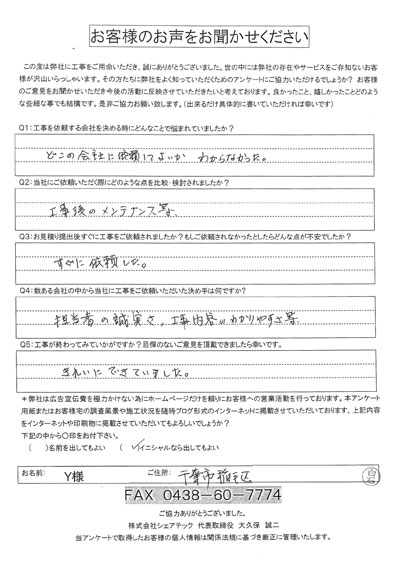 お客様のお声をお聞かせください
この度は弊社に工事をご用命いただき、誠にありがとうございました。世の中には弊社の存在やサービスをご存知ないお客
様が沢山いらっしゃいます。その方たちに弊社をよく知っていただくためのアンケートにご協力いただけるでしょうか? お客様
のご意見をお聞かせいただき今後の活動に反映させていただきたいと考えております。良かったこと、嬉しかったことどのよう
な些細な事でも結構です。是非ご協力お願い致します。(出来るだけ具体的に書いていただければ幸いです)
Q1:工事を依頼する会社を決める時にどんなことで悩まれていましたか?
どこの会社に依頼してよいか わからなかった。
Q2:当社にご依頼いただく際にどのような点を比較・検討されましたか?
工事後のメンテナンス等
Q3:お見積り提出後すぐに工事をご依頼されましたか?もしご依頼されなかったとしたらどんな点が不安でしたか?
すぐに依頼した。
Q4:数ある会社の中から当社に工事をご依頼いただいた決め手は何ですか?
担当者の誠実さ、工事内容のわかりやすさ等
Q5:工事が終わってみていかがですか?忌憚のないご意見を頂戴できましたら幸いです。
きれいにできていました。
*弊社は広告宣伝費を極力かけない為にホームページだけを頼りにお客様への営業活動を行っております。本アンケート
用紙またはお客様宅の調査風景や施工状況を随時ブログ形式のインターネットに掲載させていただいております。上記内容
をインターネットや印刷物に掲載させていただいてもよろしいでしょうか?
下記の中から〇印をお付け下さい。
( )名前を出してもよい (✓)イニシャルなら出してもよい
お名前: Y様 ご住所: 千葉市稲毛区 白石
FAX 0438-60-7774
ご協力ありがとうございました。
株式会社シェアテック 代表取締役 大久保 誠二
当アンケートで取得したお客様の個人情報は関係法規に基づき厳正に管理いたします。